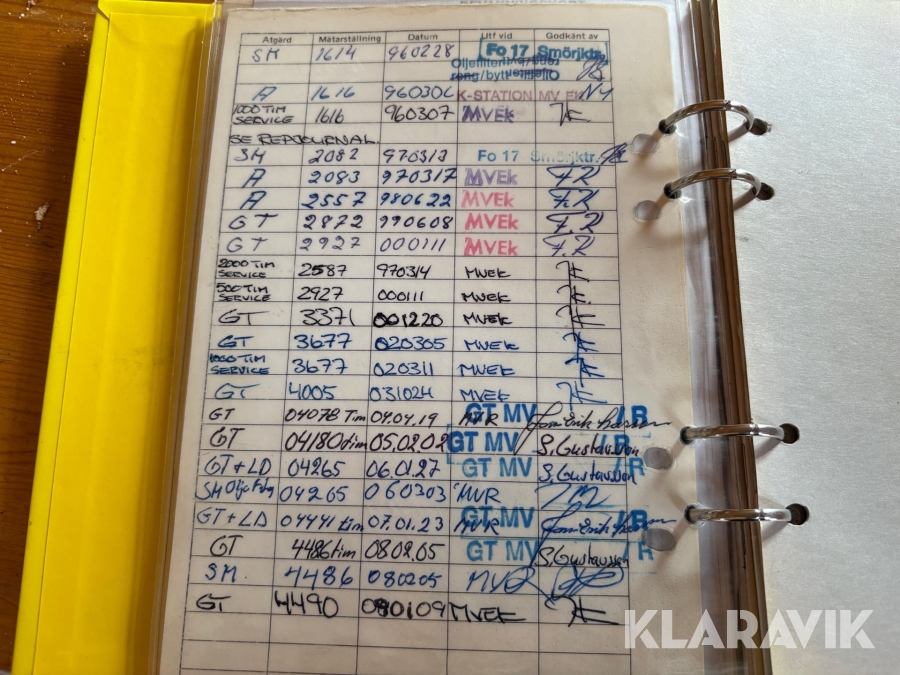 Åtgärd Mätarställning Datum Utf vid Godkänt av
SM 1614 960228 Fo 17 Smörjktr.
Oljefilter
A 1616 960306 K-STATION MV EK NY
1000 TIM SERVICE 1616 960307 MVEK
SE REPJOURNAL.
SM 2082 970313 Fo 17 Smörjktr.
A 2083 970317 MVEK F.R
A 2557 980622 MVEK F.R
GT 2872 990608 MVEK F.R
GT 2927 000111 MVEK F.R
2000 TIM SERVICE 2587 970314 MVEK
500 TIM SERVICE 2927 000111 MVEK
GT 3371 001220 MVEK
GT 3677 020305 MVEK
1000 TIM SERVICE 3677 020311 MVEK
GT 4005 031024 MVEK
GT 04078 Tim 04.04.19 MVR GT MV / R
GT 04180 tim 05.02.02 GT MV S. Gustavsson / R
GT + LD 04265 06.01.27 GT MV S. Gustavsson / R
SM 04265 060303 MVR
GT + LD 04441 tim 07.01.23 MVR GT MV / R
GT 4486 tim 08.02.05 GT MV S. Gustavsson / R
SM. 4486 080205 MVR
GT 4490 080109 MVEK
KLARAVIK